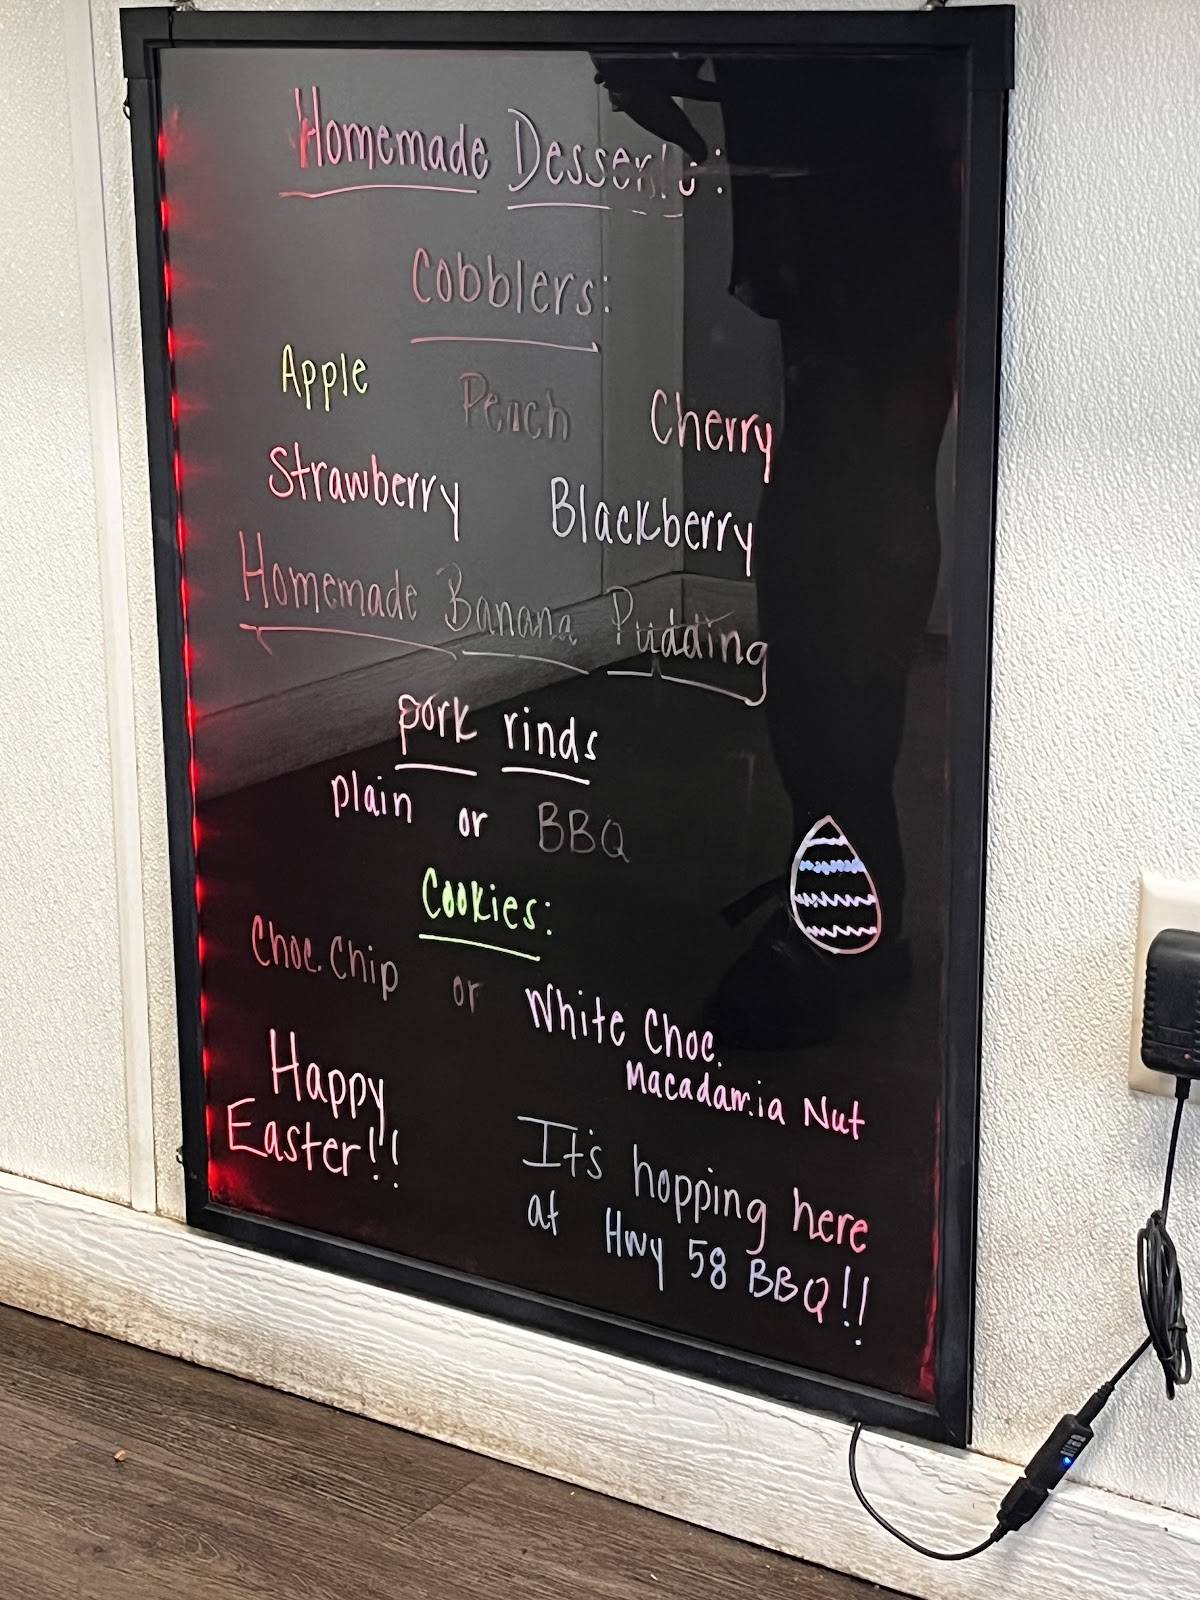 Homemade Desserts:
Cobblers:
Apple Peach Cherry
Strawberry Blackberry
Homemade Banana Pudding
pork rinds
plain or BBQ
Cookies:
Choc. Chip or White Choc.
Macadamia Nut
Happy
Easter!!
It's hopping here
at Hwy 58 BBQ!!